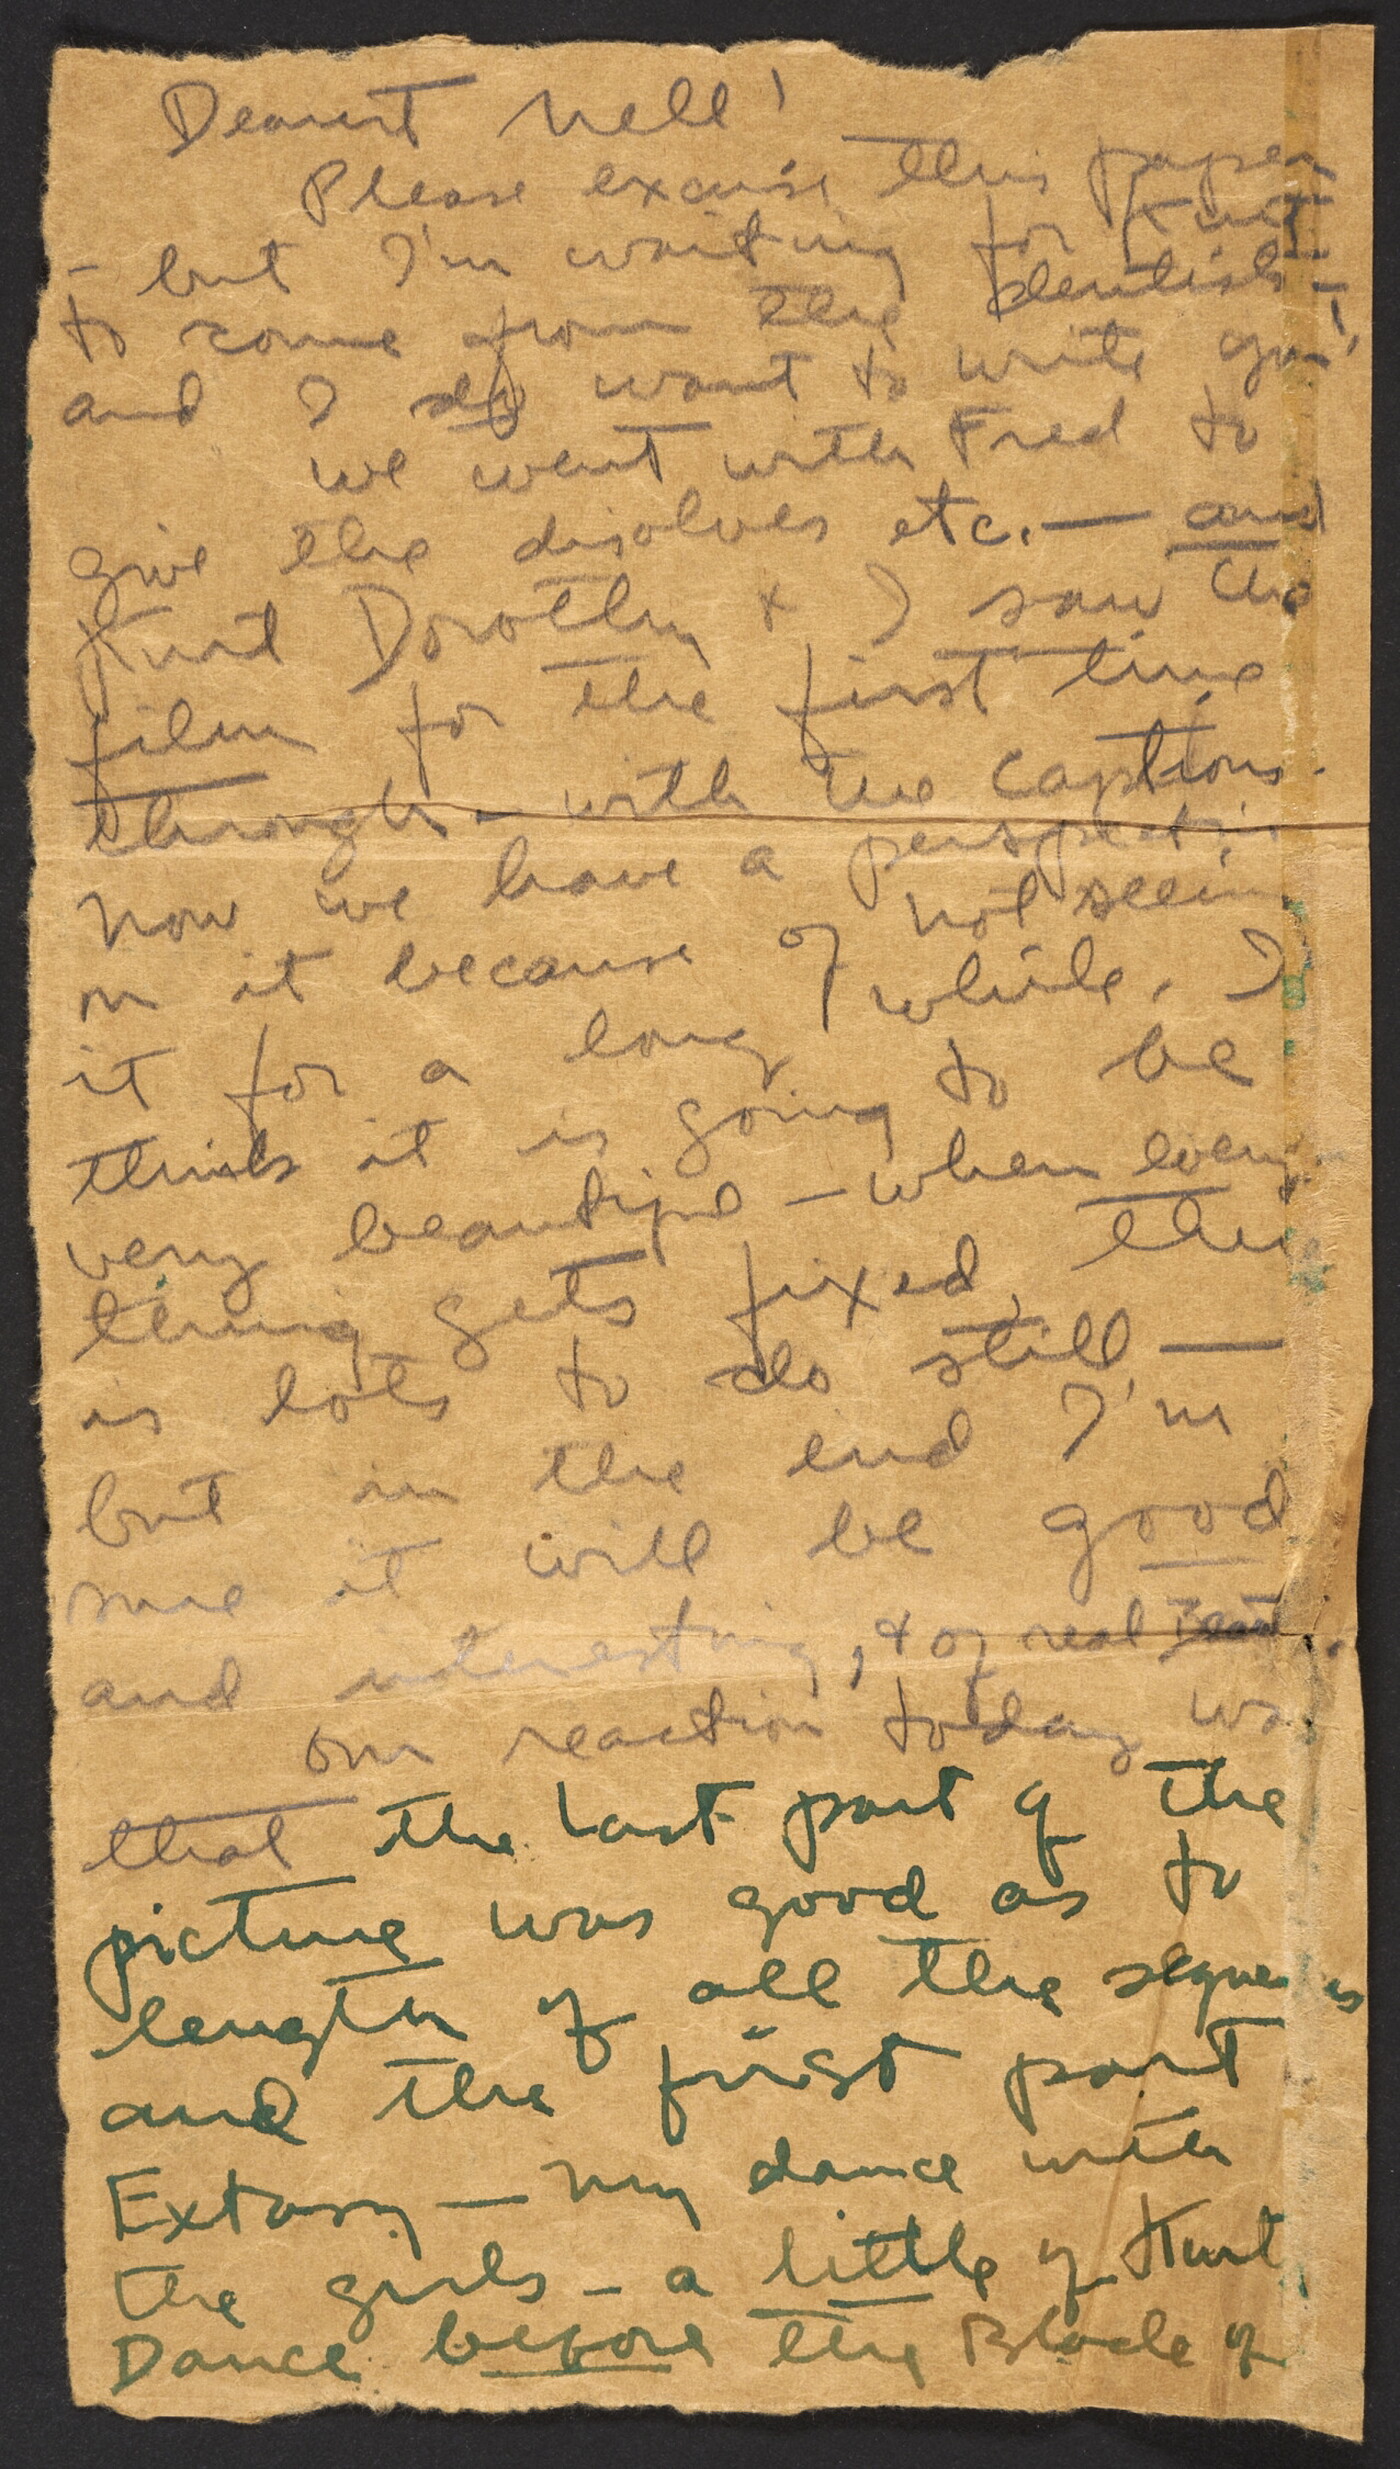 Dearest Nell!
Please excuse this paper
- but I'm waiting for Kurt
to come from the dentist -
and I do want to write you!
We went with Fred to
give the disolves etc. — and
Kurt Dorothy & I saw the
film for the first time
through - with the captions.
Now we have a
on it because of not seein
it for a long while. I
think it is going to be
very beautiful - when every
thing gets fixed, the
is lots to do still —
but in the end I'm
sure it will be good
and interesting, & of real
Our reaction today was
that the last part of the
picture was good as to
length of all the
and the first part
Extasy — my dance with
the girls - a little of Kurt
Dance before the Blade of